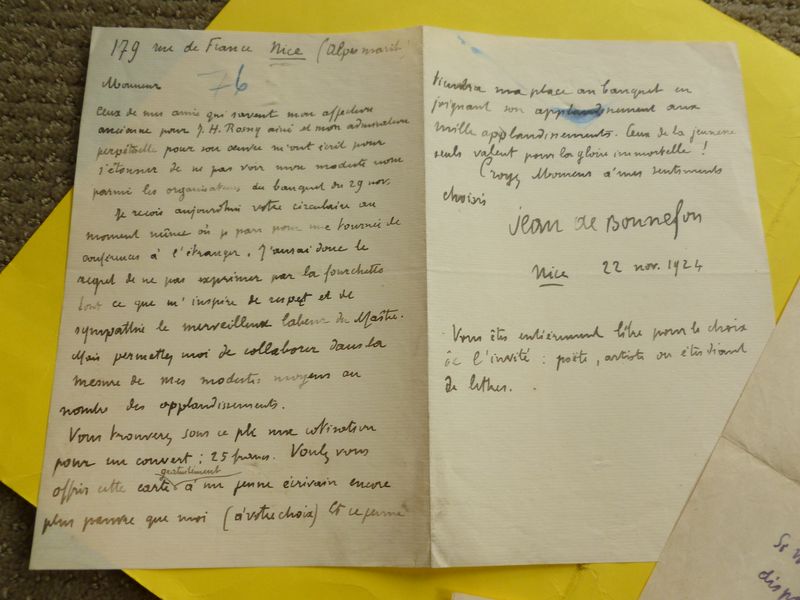 179 rue de France Nice (Alpes marit.)
76
Monsieur
Ceux de mes amis qui savent mon affection
ancienne pour J. H. Rosny ainé et mon admiration
perpétuelle pour son œuvre m'ont écrit pour
s'étonner de ne pas voir mon modeste nom
parmi les organisateurs du banquet du 29 nov.
Je reçois aujourd'hui votre circulaire au
moment même où je pars pour une tournée de
conférences à l'étranger. J'aurai donc le
regret de ne pas exprimer par la fourchette
tout ce que m'inspire de respect et de
sympathie le merveilleux labeur du Maître.
Mais permettez moi de collaborer dans la
mesure de mes modestes moyens au
nombre des applaudissements.
Vous trouverez sous ce pli une cotisation
pour un couvert : 25 francs. Voulez vous
gratuitement
offrir cette carte à un jeune écrivain encore
plus pauvre que moi (à votre choix) Et ce jeune
tiendra ma place au banquet en
joignant son applaudissement aux
mille applaudissements. Ceux de la jeunesse
seuls valent pour la gloire immortelle !
Croyez Monsieur à mes sentiments
choisis
Jean de Bonnefon
Nice 22 nov. 1924
Vous êtes entièrement libre pour le choix
de l'invité : poëte, artiste ou étudiant
de lettres.
disp